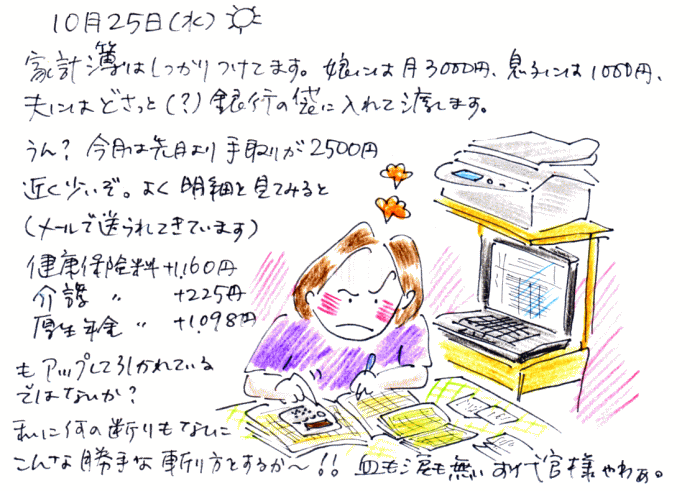 10月25日(水)
家計簿はしっかりつけてます。娘には月3000円、息子には1000円、
夫にはどさっと(?)銀行の袋に入れて渡します。
うん? 今月は先月より手取りが2500円
近く少いぞ。よく明細を見てみると
(メールで送られてきています)
健康保険料+1,160円
介護 〃 +225円
厚生年金 〃 +1,098円
もアップして引かれている
ではないか?
私に何の断りもなしに
こんな勝手な斬り方をするか〜!! 血も涙も無いお代官様やわぁ。